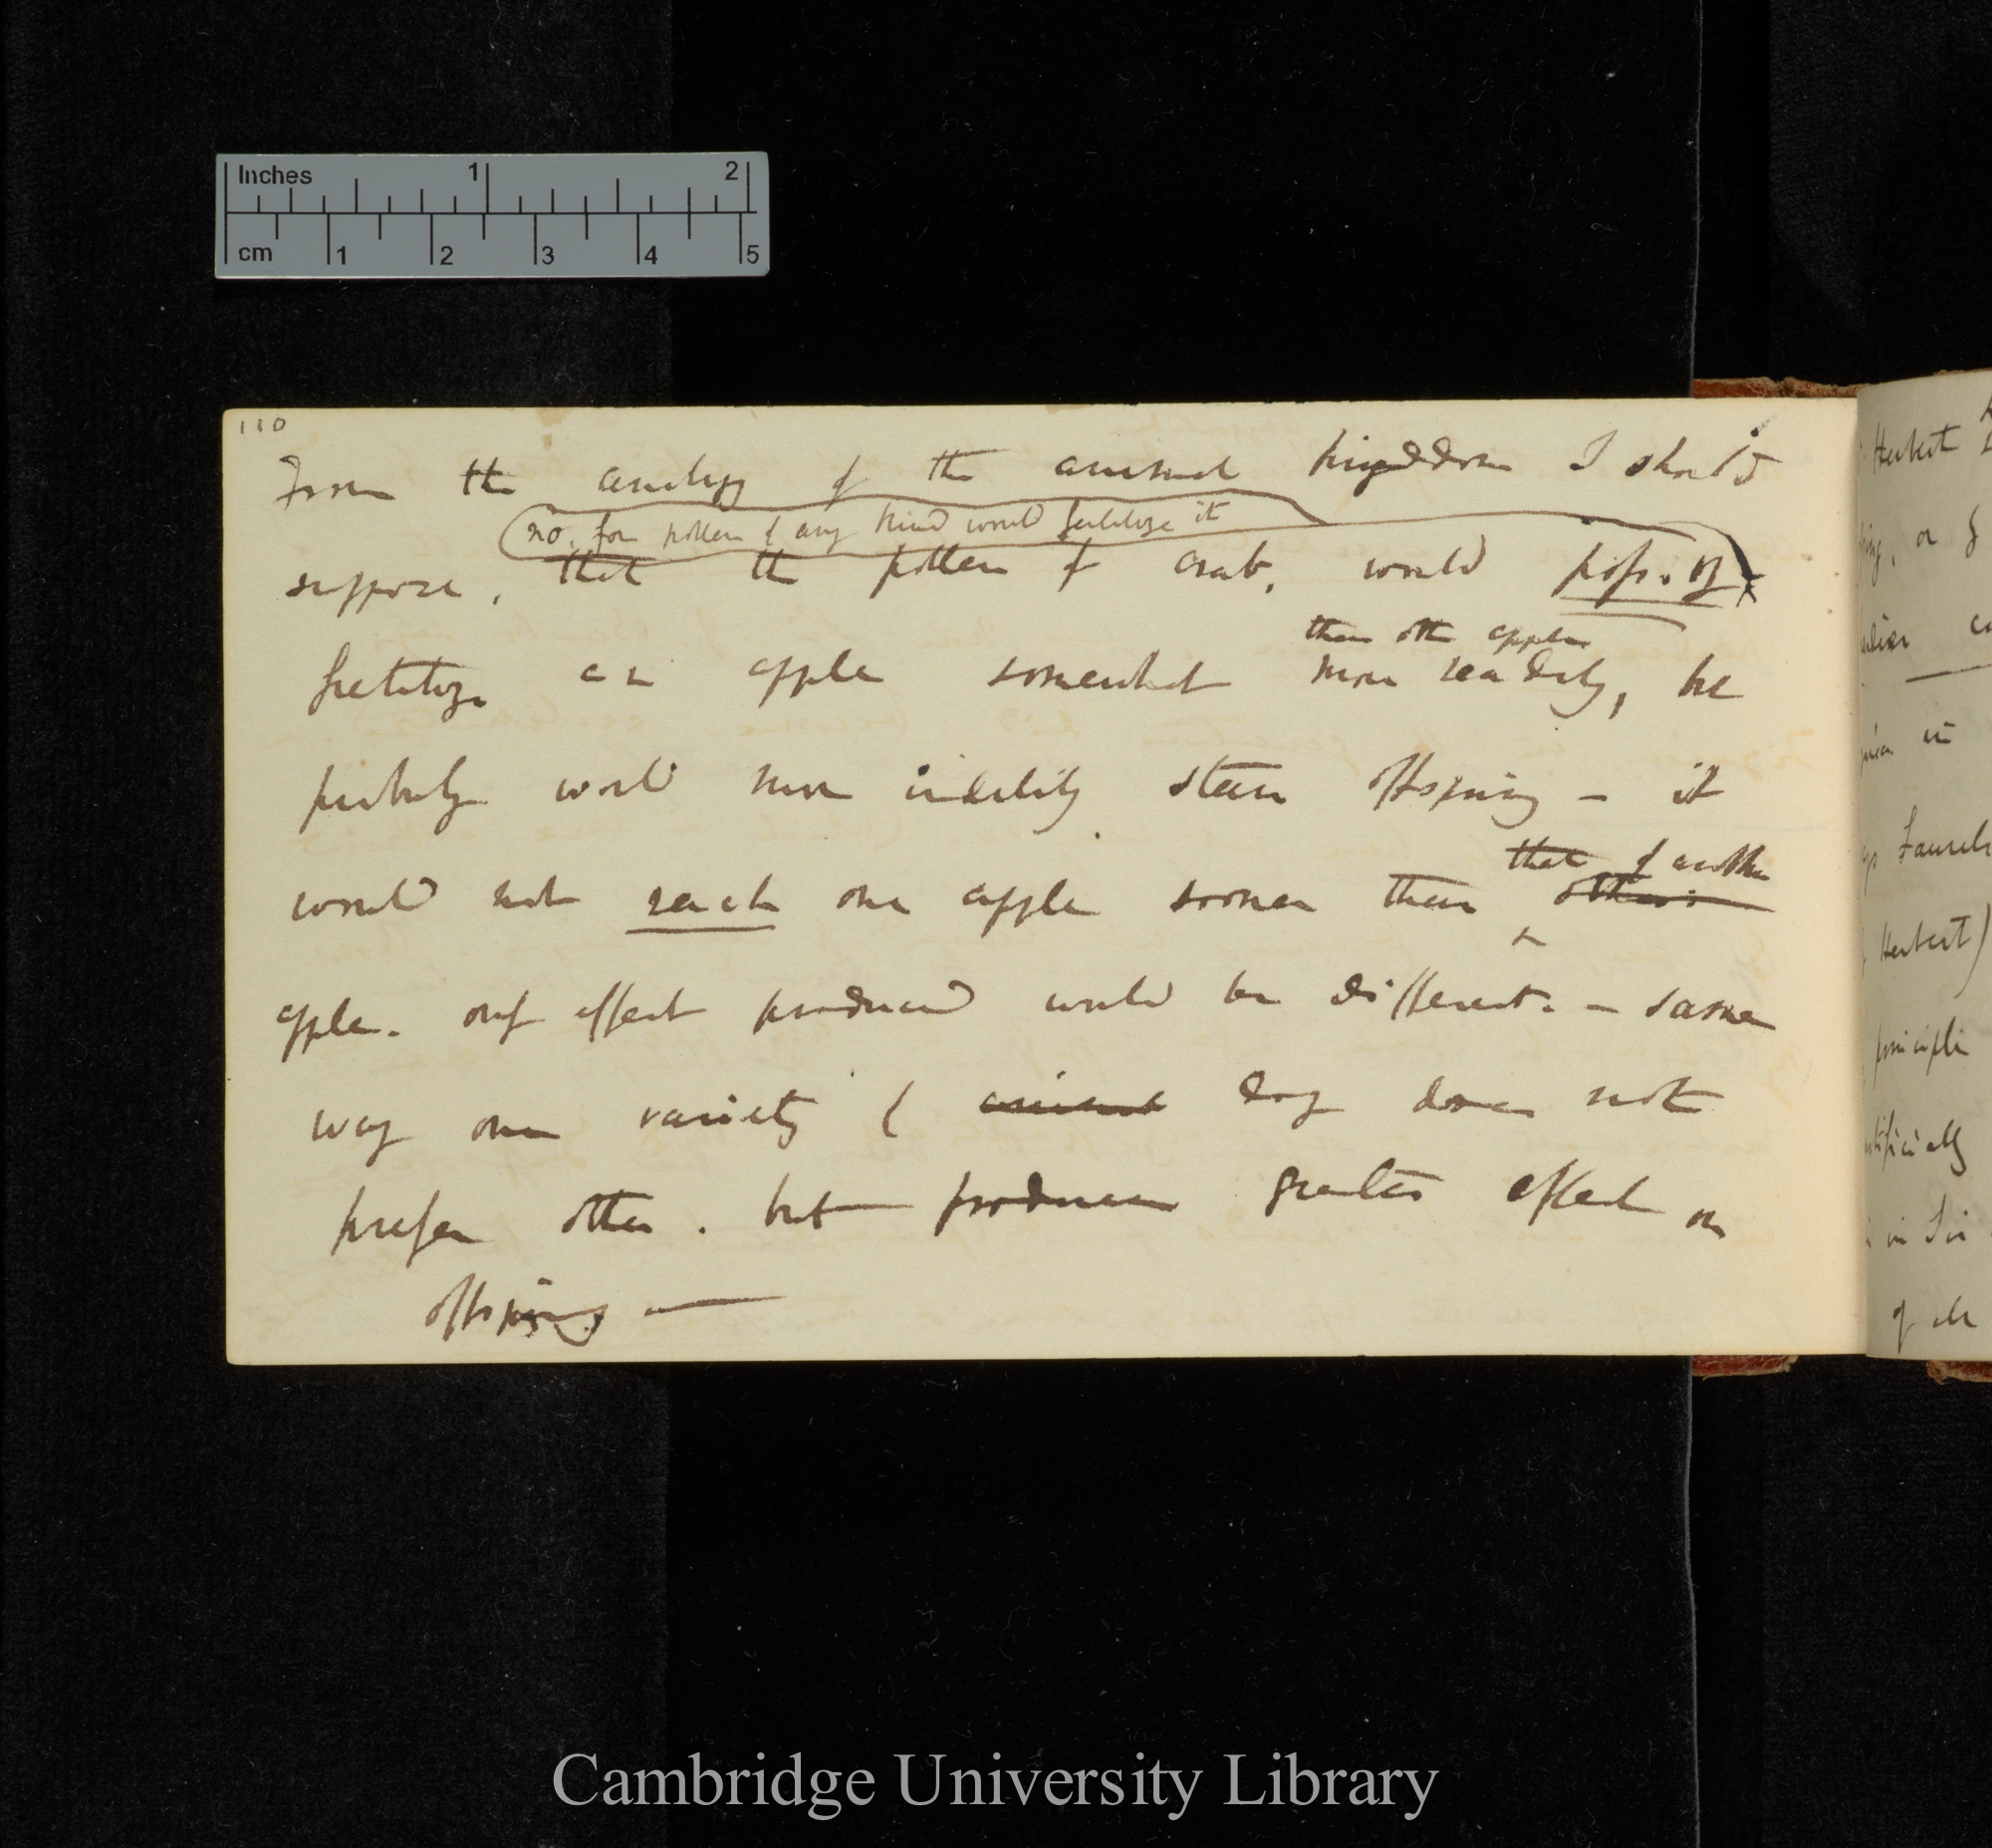 Inches 1 2
cm 1 2 3 4 5
110
From the analogy of the animal kingddom I should
no. for pollen of any kind would fertilize it
suppose, that the pollen of crab, would poss. by
than oth apples
fertilize an apple somewhat more readily, he
probably would more indelibly stain offspring – it
that of another
would not reach one apple sooner than others
apple. only effect produced would be different. – same
way one variety of animal dog does not
prefer other. but produces greater effect on
offspring —
Herbert
Laurels
Herbert)
principle
in Sir
Cambridge University Library